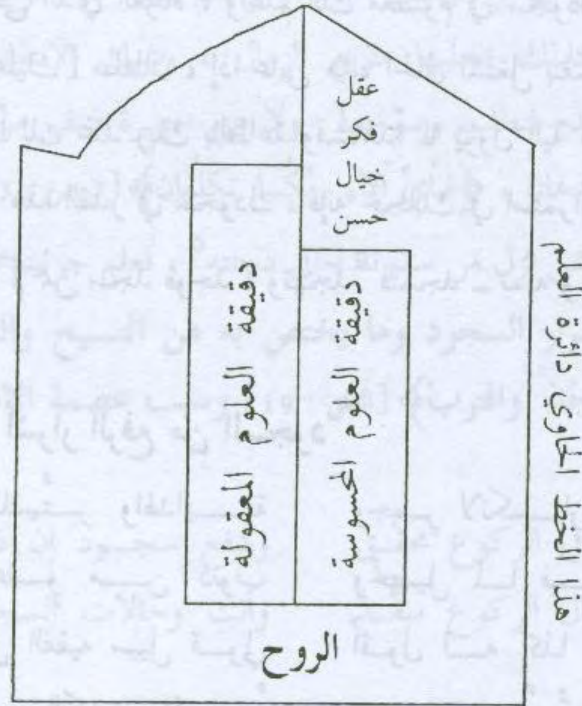 عقل
فكر
خيال
حسن
دقيقة العلوم المعقولة
دقيقة العلوم المحسوسة
الروح
هذا الخط الحاوي دائرة العلم